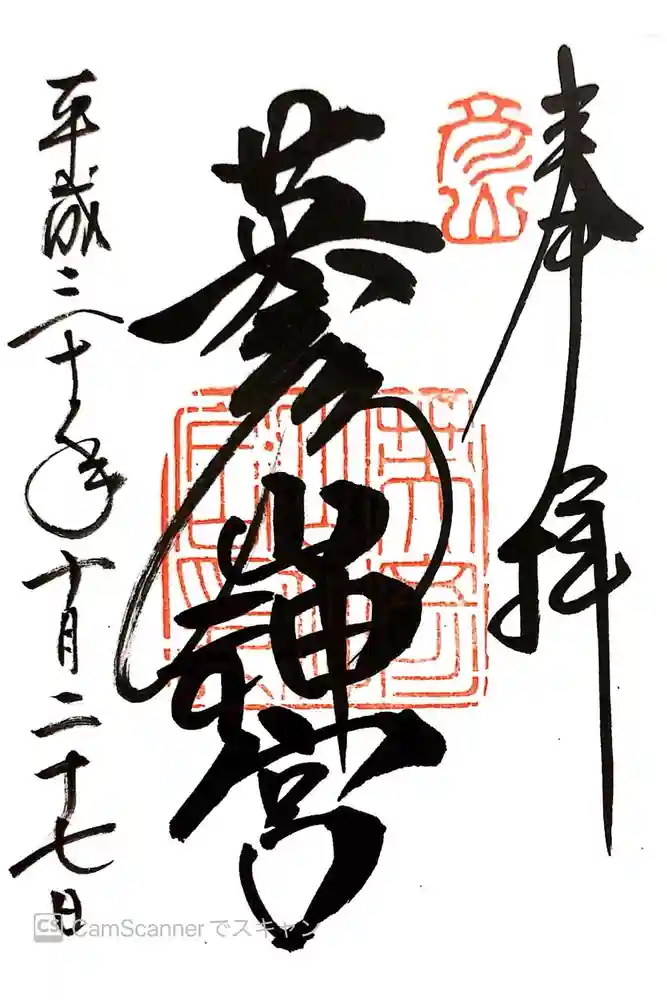 奉拝
彦山
英彦山神宮
平成三十年十月二十七日
CS CamScannerでスキャン